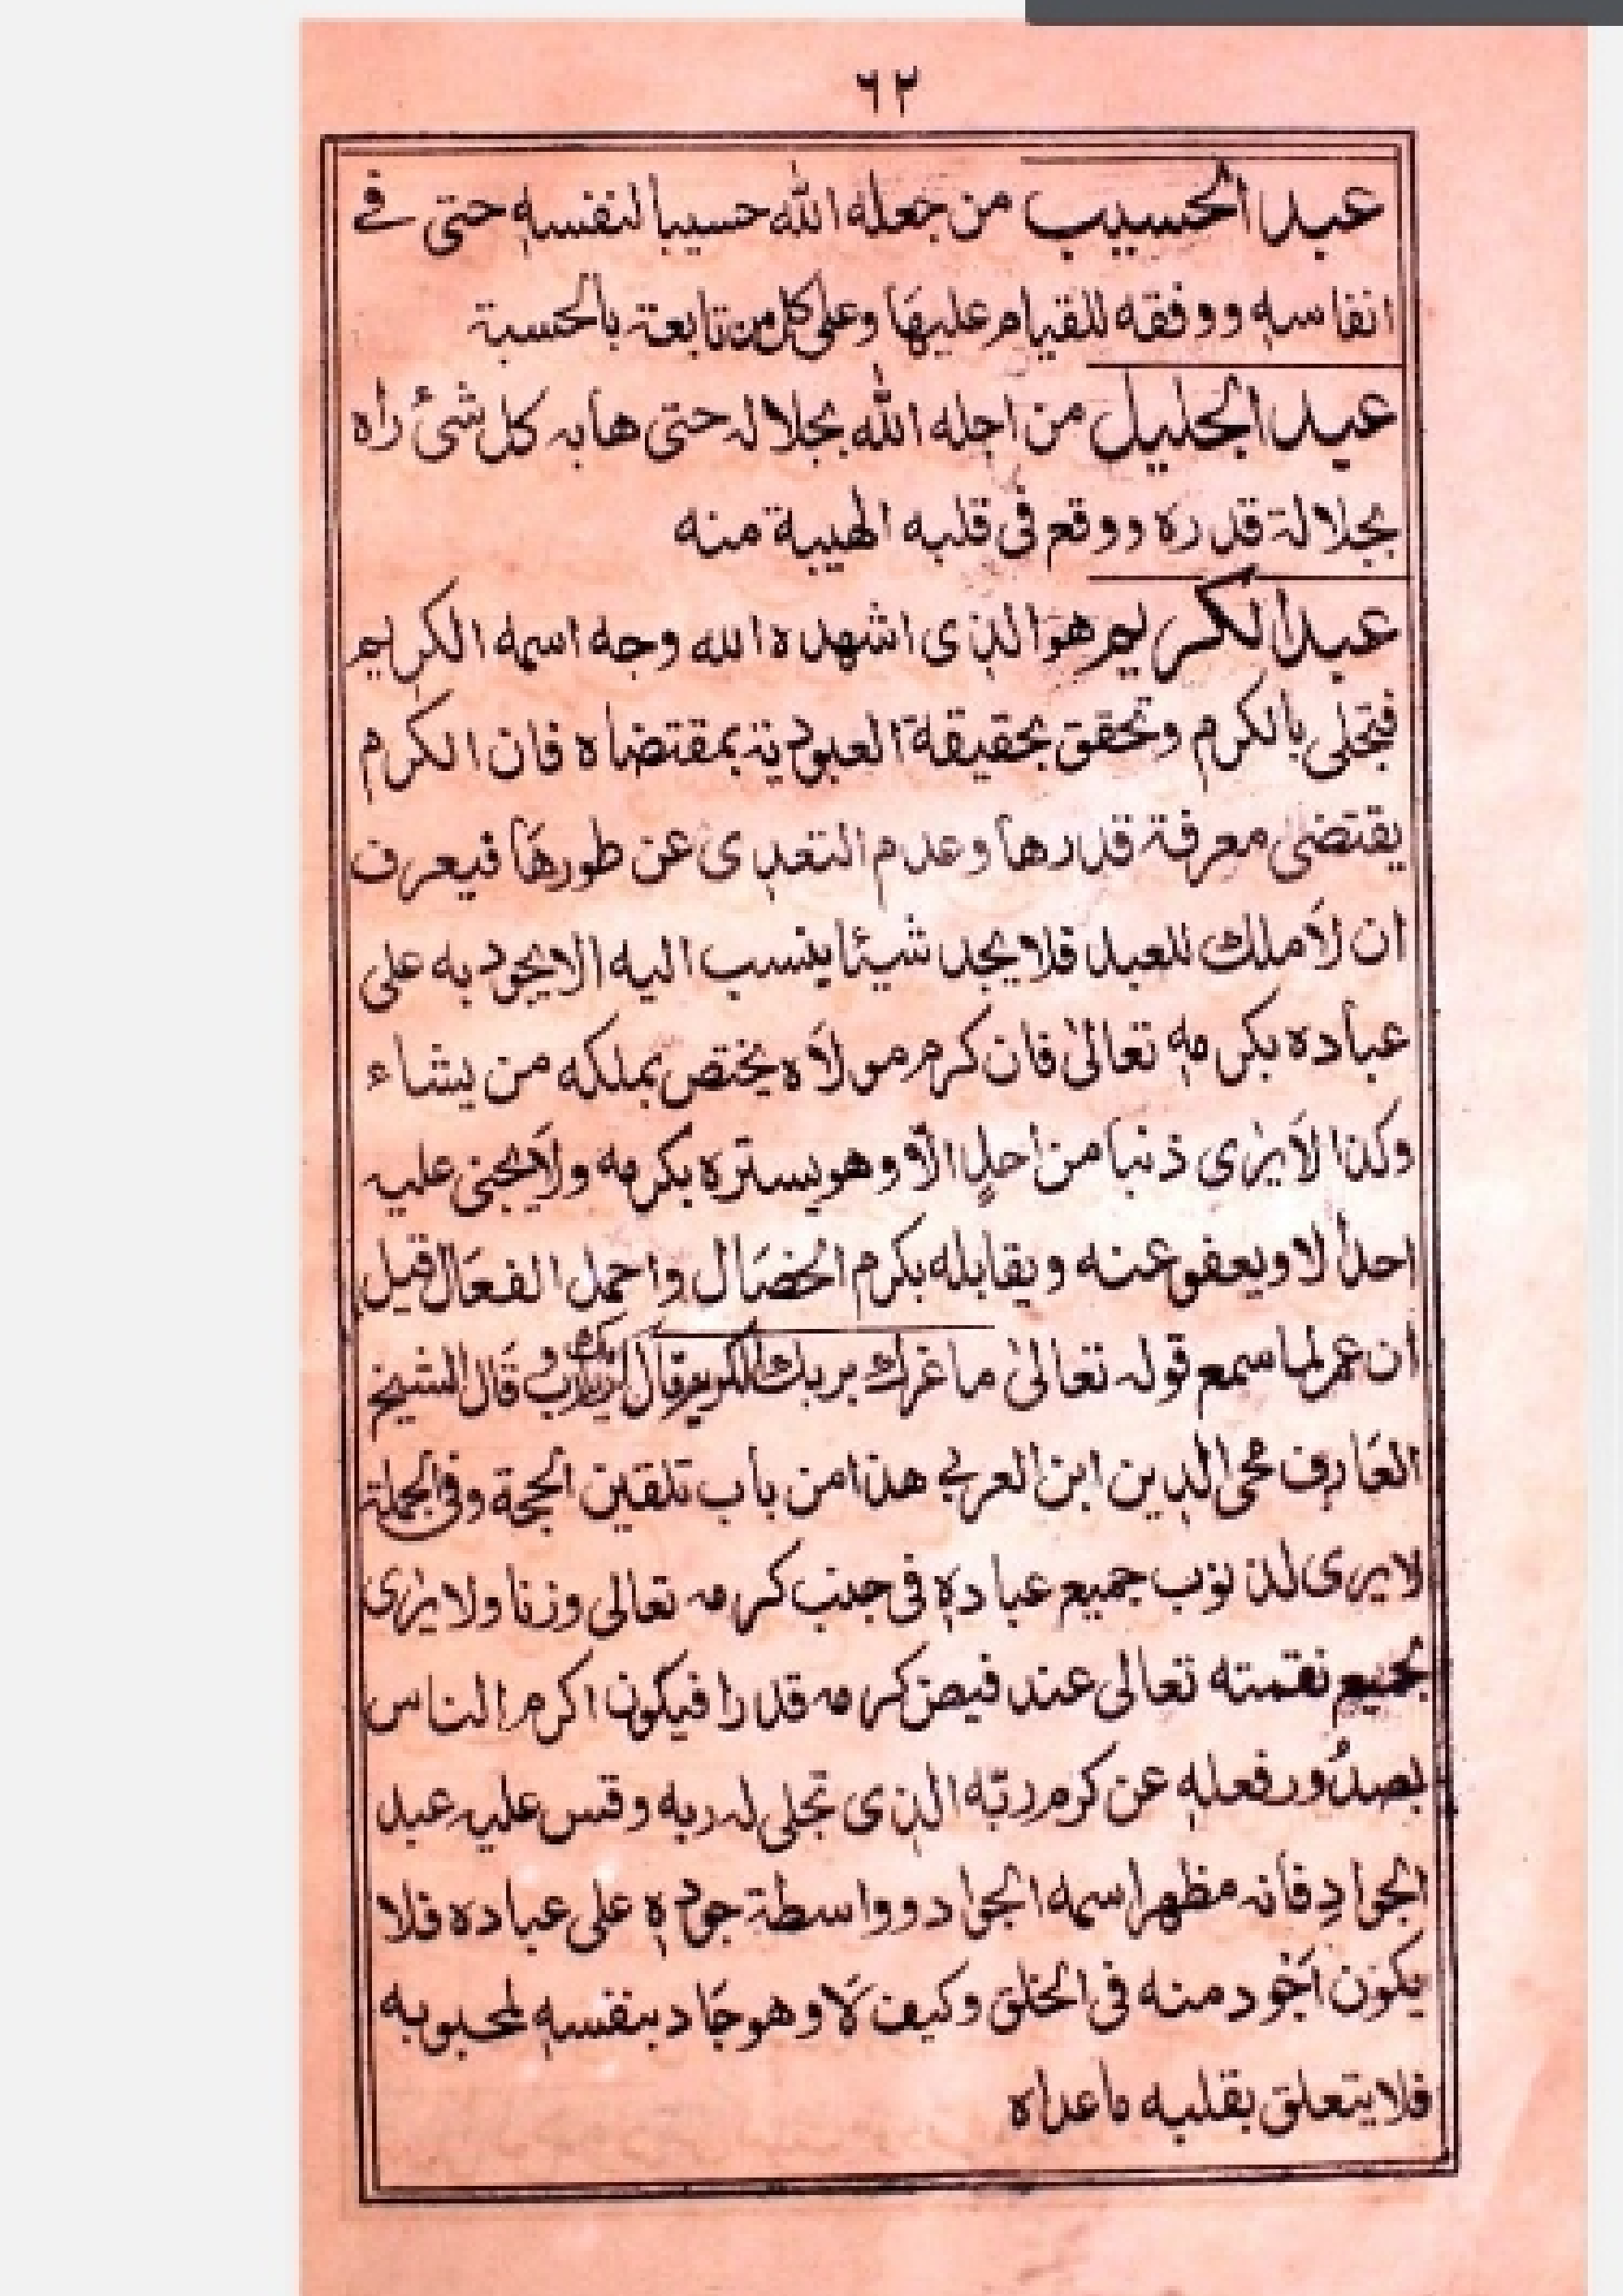 ٦٢
عبد الحسيب من جعله الله حسيبا لنفسه حتى في
انفاسه ووفقه للقيام عليها وعلى كل من تابعة بالحسبة
عبد الجليل من اجله الله بجلاله حتى هابه كل شئ رأه
بجلالة قدره ووقع فى قلبه الهيبة منه
عبد الكريم هو الذى اشهده الله وجه اسمه الكريم
فتجلى بالكرم وتحقق بحقيقة العبودية بمقتضاه فان الكرم
يقتضى معرفة قدرها وعدم التعدى عن طورها فيعرف
ان لا ملك للعبد فلا يجد شيئا ينسب اليه الا يجود به على
عباده بكرمه تعالى فان كرم مولاه يختص بملكه من يشاء
وكذا لا يرى ذنبا من احد الا وهو يستره بكرمه ولا يجنى عليه
احد الا ويعفو عنه ويقابله بكرم الخصال واجمل الفعال قيل
ان عمر لما سمع قوله تعالى ما غرك بربك الكريم قال يارب و قال الشيخ
العارف محى الدين ابن العربي هذا من باب تلقين الحجة وفى الجملة
لا يرى لذنوب جميع عباده فى جنب كرمه تعالى وزنا ولا يرى
لجميع نقمته تعالى عند فيض كرمه قدرا فيكون اكرم الناس
بصدور فعله عن كرم ربّه الذى تجلى له ربه وقس عليه عبد
الجواد فانه مظهر اسمه الجواد وواسطة جوده على عباده فلا
يكون اجود منه فى الخلق وكيف لا وهو جاد بنفسه لمحبوبه
فلا يتعلق بقلبه ما عداه